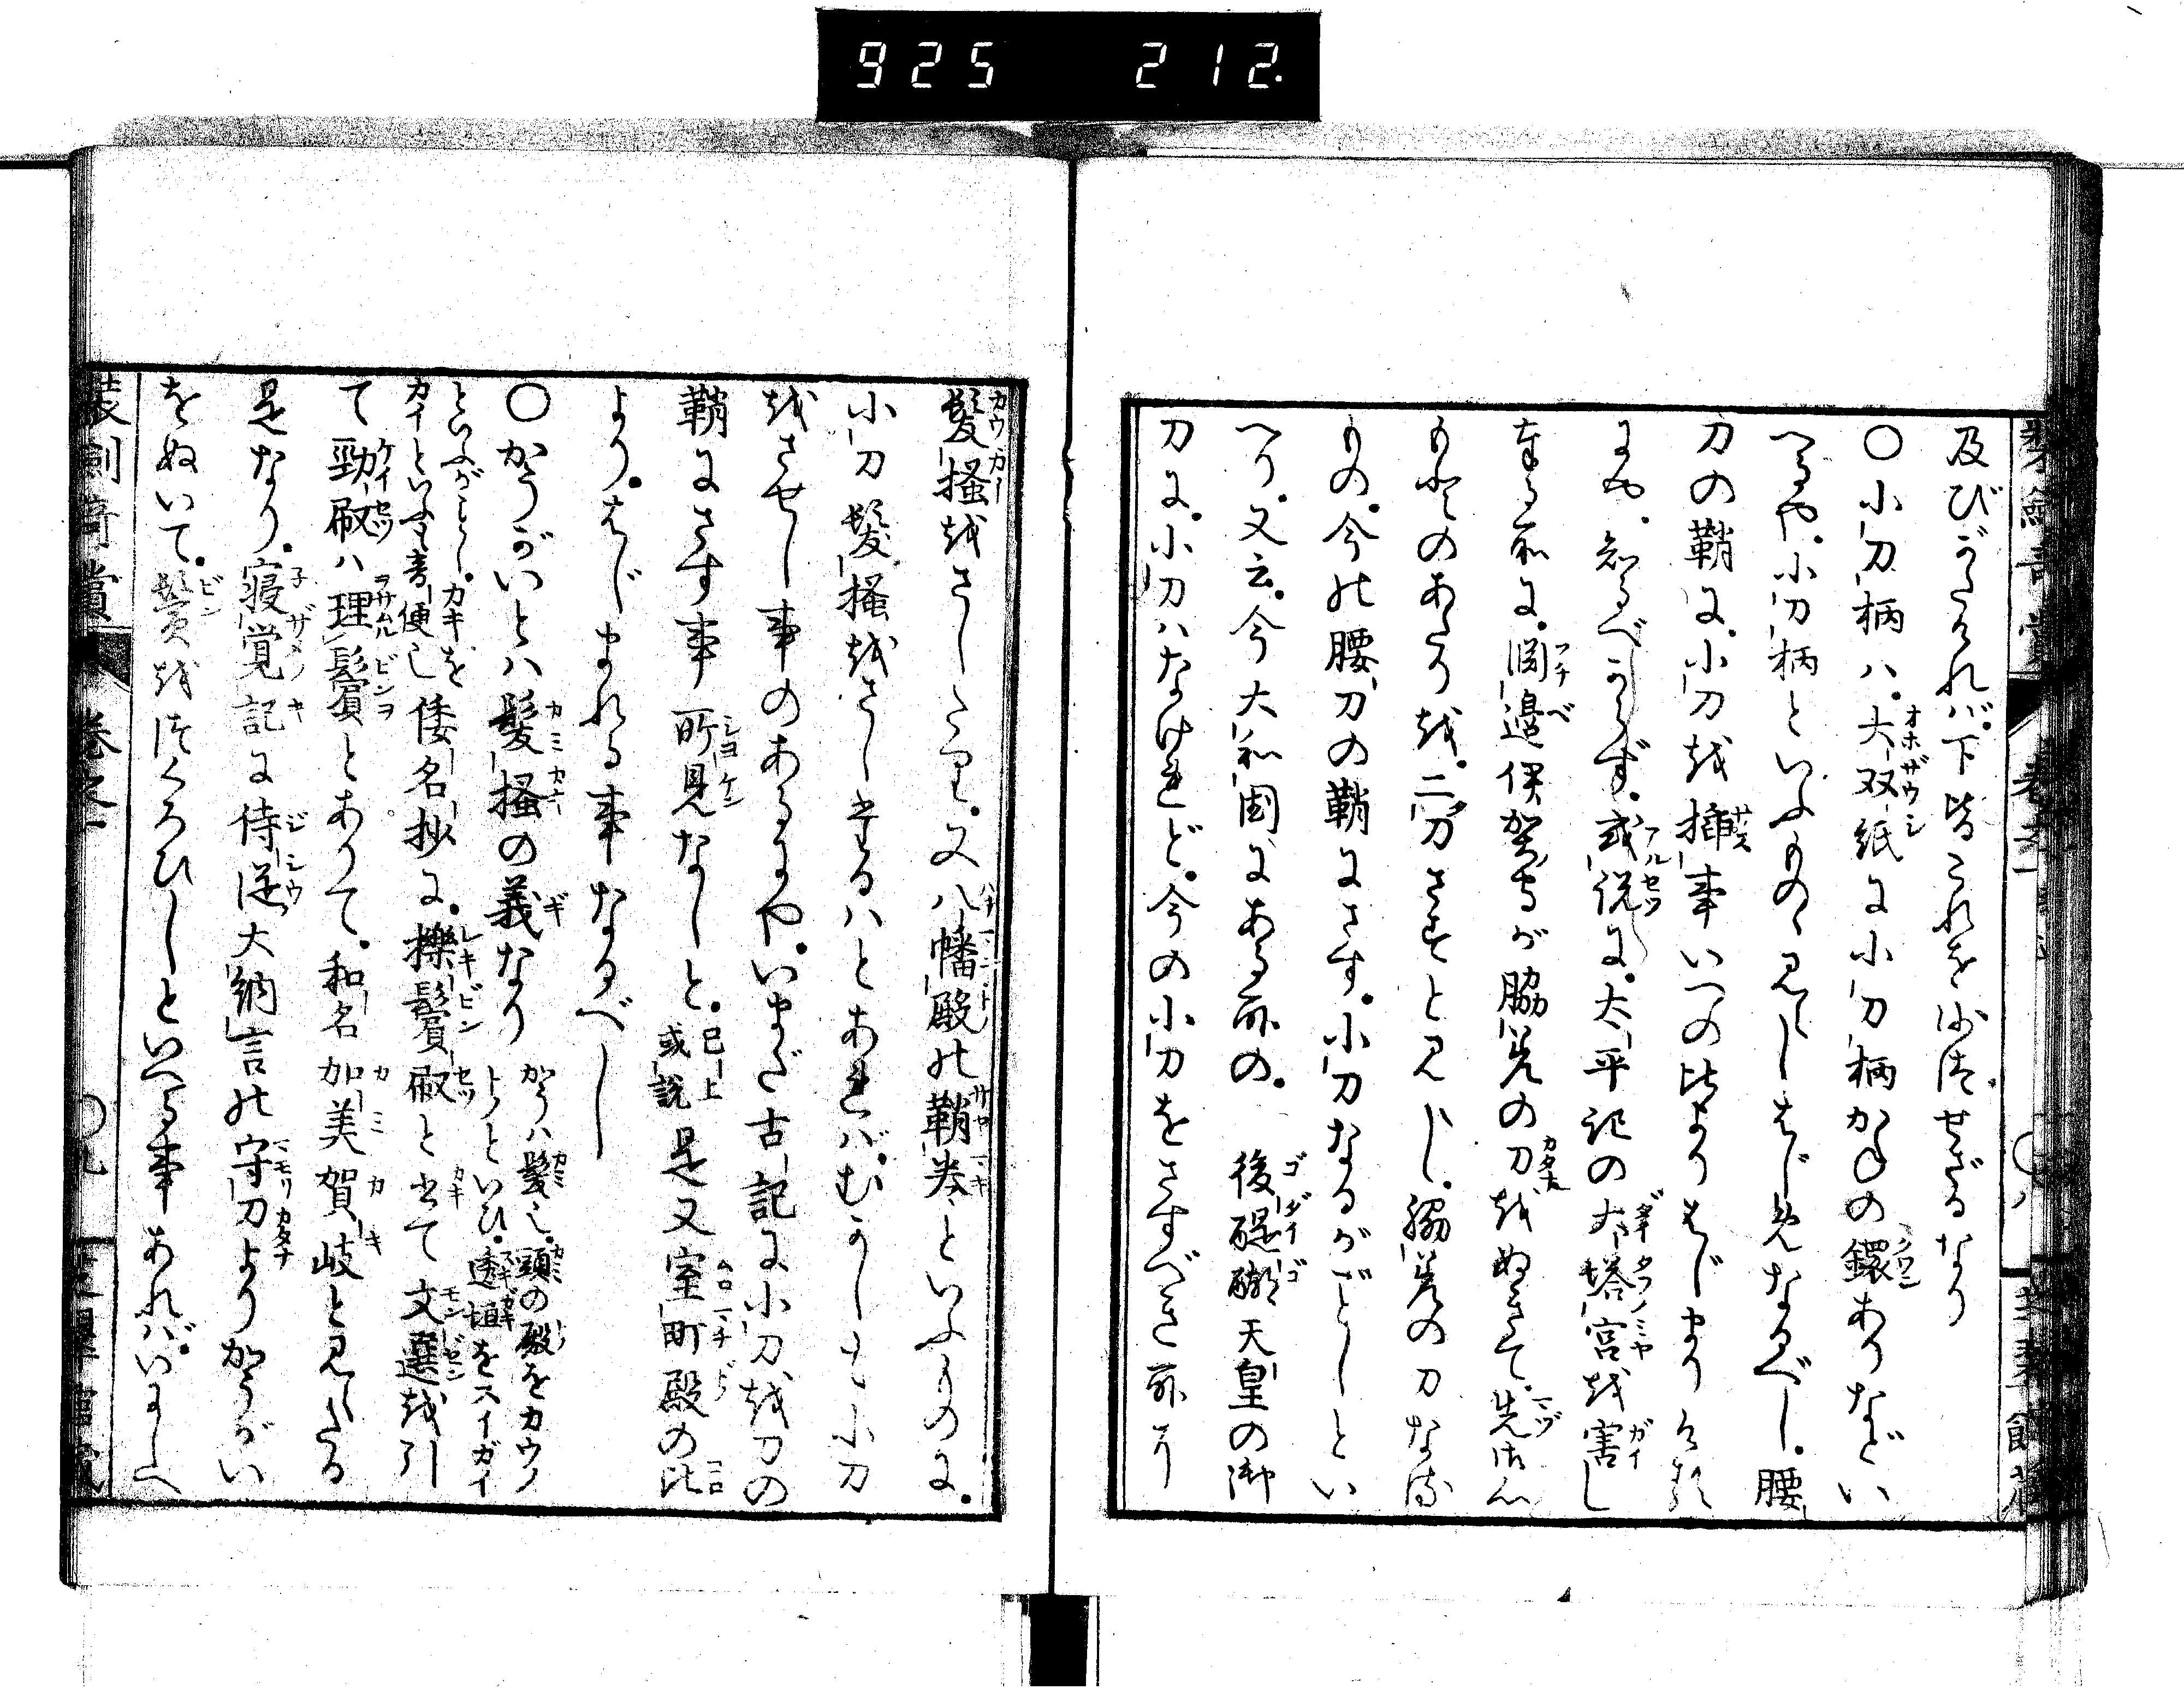 925 212.
及びがたければ。下皆これを沙汰せざるなり
〇小刀柄ハ。大双紙に小刀柄かねの鐶ありなどい
へるや。小刀柄といふものゝ見へしはじめなるべし。腰
刀の鞘に。小刀を挿事いつの比よりはじまりけん
にや。知るべからず。或説に。太平記の大塔宮を害し
奉る所に。淵邊伊賀守が脇差の刀をぬきて。先御心
もとのあたりを。二刀さすと見へし。脇差の刀なる
もの。今の腰刀の鞘にさす。小刀なるがごとしとい
へり。又云。今大和国にある所の。後醍醐天皇の御
刀に。小刀ハなけれど。今の小刀をさすべき所より
髪掻をさしたり。又八幡殿の鞘巻といふものに。
小刀髪掻をさしたるハとあれバ。むかしも小刀
をさせし事のあるにや。いまだ古記に小刀を刀の
鞘にさす事所見なしと。已上或説是又室町殿の比
より。はじまれる事なるべし
〇かうがいとハ髪掻の義なり かうハ髪也。頭の殿をカウノ
とのといひ。透垣をスイガイ
といふがごとし。カキを
カイといふも音便也倭名抄に。擽鬢㕞と出て文選を引
て勁㕞ハ理鬢とありて。和名加美賀岐と見へたる
是なり。寝覚記に侍従大納言の守刀よりかうがい
をぬいて。鬢をつくろひしといへる事あれバ。いにしへ
装劔奇賞 巻之一 〇九